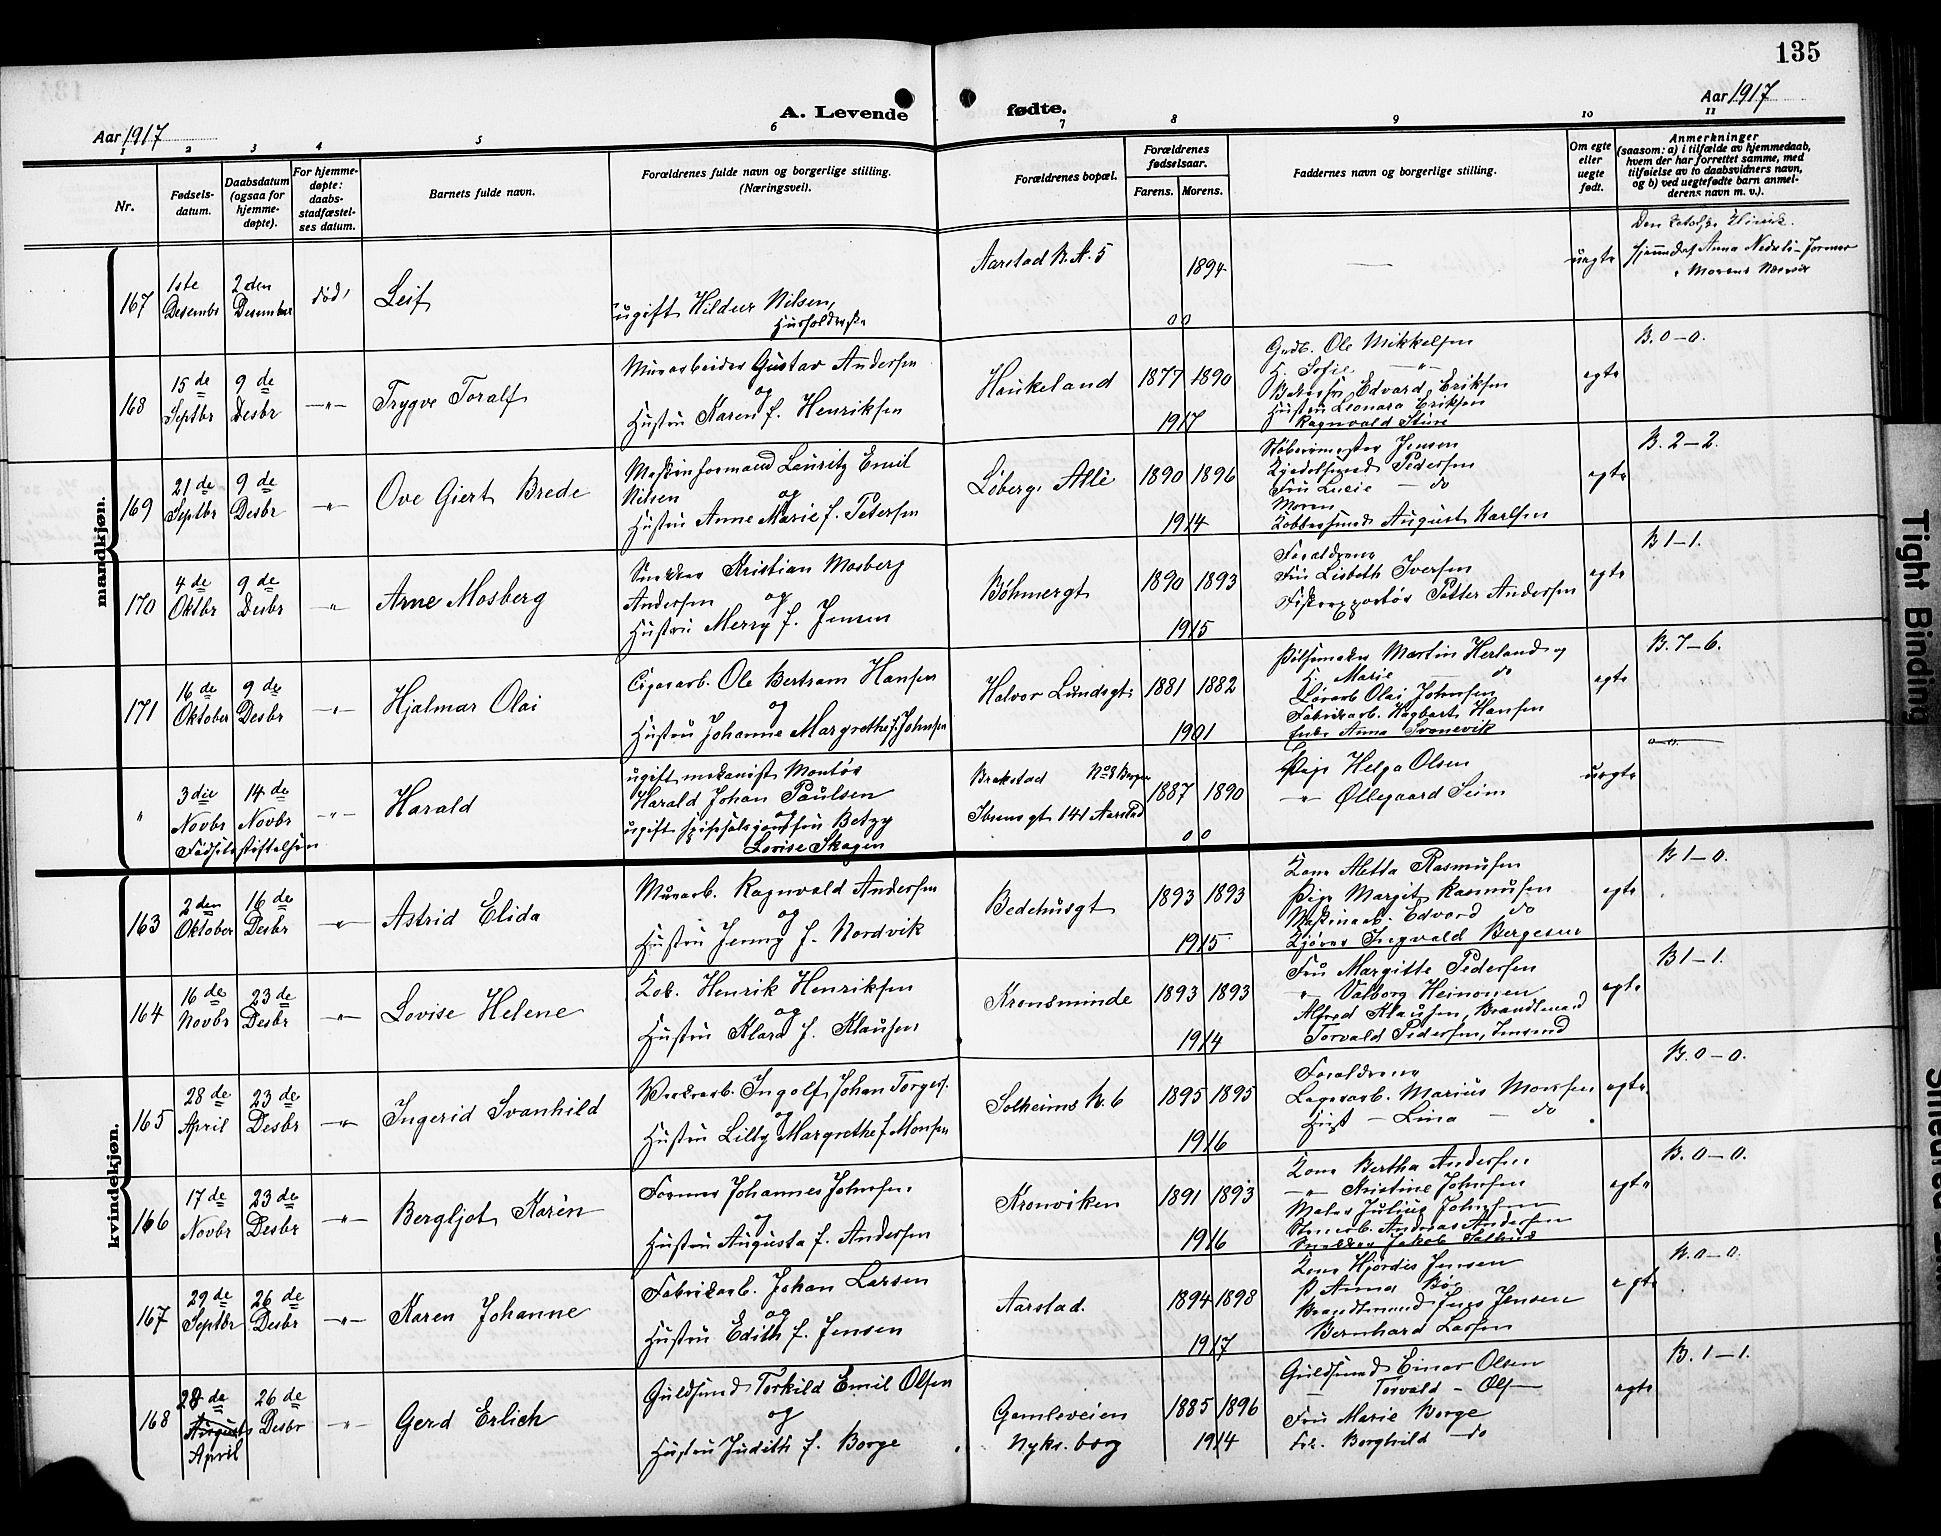 135
Aar 1917
A. Levende fødte.
Aar 1917
1 2 3 4 5 6 7 8 9 10 11
Nr.
Fødsels-
datum.
Daabsdatum
(ogsaa for
hjemme-
døpte).
For hjemme-
døpte:
daabs-
stadfæstel-
ses datum.
Barnets fulde navn.
Forældrenes fulde navn og borgerlige stilling.
(Næringsvei).
Forældrenes bopæl.
Forældrenes
fødselsaar.
Farens. Morens.
Faddernes navn og borgerlige stilling.
Om egte
eller
uegte
født.
Anmerkninger
(saasom: a) i tilfælde av hjemmedaab,
hvem der har forrettet samme, med
tilføielse av to daabsvidners navn,
og b) ved uegtefødte barn anmel-
derens navn m. v.).
mandkjøn.
167
1ste
Desembr
2den
Desember
død
Leif
ugift Hildur Nilsen,
Husholderske
Aarstad N. A. 5
1894
00
uegte
168
15de
Septbr
9de
Desbr
—"—
Trygve Toralf
Murarbeider Gustav Andersen
og
Hustru Karen f. Henriksen
Haukeland
1877 1890
1917
Ole Mikkelsen
H. Sofie —"—
Edvard Eriksen
Hustru Leonara Eriksen
Ragnvald Sture
egte
B. 0—0.
169
21de
Septbr
9de
Desbr
—"—
Ove Giert Brede
Maskinformand Lauritz Emil
Nilsen
og
Hustru Anne Marie f. Petersen
Løbergs Allé
1890 1896
1914
Støberimester Jensen
Pedersen
Fru Lucie — do
Moren
August Karlsen
egte
B. 2—2.
170
4de
Oktbr
9de
Desbr
—"—
Arne Mosberg
Snekker Kristian Mosberg
Andersen
og
Hustru Merry f. Jensen
Bøhmergt
1890 1893
1915
Forældrene
Fru Lisbeth Iversen
Fiskeexportør Petter Andersen
egte
B 1—1.
171
16de
Oktober
9de
Desbr
—"—
Hjalmar Olai
Cigararb. Ole Bertram Hansen
og
Hustru Johanne Margrethe f. Johnsen
Halvor Lundsgt:
1881 1882
1901
Pølsemaker Martin Herland og
H. Marie do
Olai Johnsen
Fabrikarb. Hagbart Hansen
Enke Anna Svanevik
egte
B. 7—6.
"
3die
Novbr
Fødselsstiftelsen
14de
Novbr
—"—
Harald
ugift mekanisk Montør
Harald Johan Paulsen
og
ugift Betzy
Lovise Skagen
Brakstad No 8 Bergen
Ibsens gt 141 Aarstad
1887 1890
00
Pige Helga Olsen
—"— Øllegaard Seim
uegte
kvindekjøn.
163
2den
Oktober
16de
Desbr
—"—
Astrid Elida
Murarb. Ragnvald Andersen
og
Hustru Jenny f. Nordvik
Bedehusgt
1893 1893
1915
Kone Aletta Rasmusen
Pige Margit Rasmusen
Maskinarb. Edvard do
Kjører Ingvald Bergesen
egte
B 1—0.
164
16de
Novbr
23de
Desbr
—"—
Lovise Helene
Kob. Henrik Henriksen
og
Hustru Klara f. Klausen
Kronsminde
1893 1893
1914
Fru Margitte Pedersen
" Valborg Heinonen
Alfred Klausen, Brandmand
Torvald Pedersen,
egte
B 1—1.
165
28de
April
23de
Desbr
—"—
Ingerid Svanhild
Verksarb. Ingolf Johan Torgers.
og
Hustru Lilly Margrethe f Monsen
Solheims N. 6
1895 1895
1916
Forældrene
Lagerarb. Marius Monsen
Hust — Lina — do
egte
B. 0—0.
166
17de
Novbr
23de
Desbr
—"—
Bergljot Karèn
Former Johannes Johnsen
og
Hustru Augusta f. Andersen
Kronviken
1891 1893
1916
Kone Bertha Andersen
—"— Kristine Johnsen
Maler Julius Johnsen
Stenarb. Andreas Andersen
Snekker Jakob
egte
B. 0—0.
167
29de
Septbr
26de
Desbr
—"—
Karen Johanne
Fabrikarb. Johan Larsen
og
Hustru Edith f. Jensen
Aarstad.
1894 1898
1917
Kone Hjørdis Jensen
P. Anna Bøe
Brandmand Jens Jensen
Bernhard Larsen
egte
B. 0—0.
168
28de
August
April
26de
Desbr
—"—
Gerd Erlich
Guldsmed Torkild Emil Olsen
og
Hustru Judith f. Borge
Gamleveien
Nyks.borg
1885 1896
1914
Guldsmed Einar Olsen
— Torvald — Ols—
Fru Marie Borge
Frk. Borghild — do
egte
B. 1—1.
Tight Binding